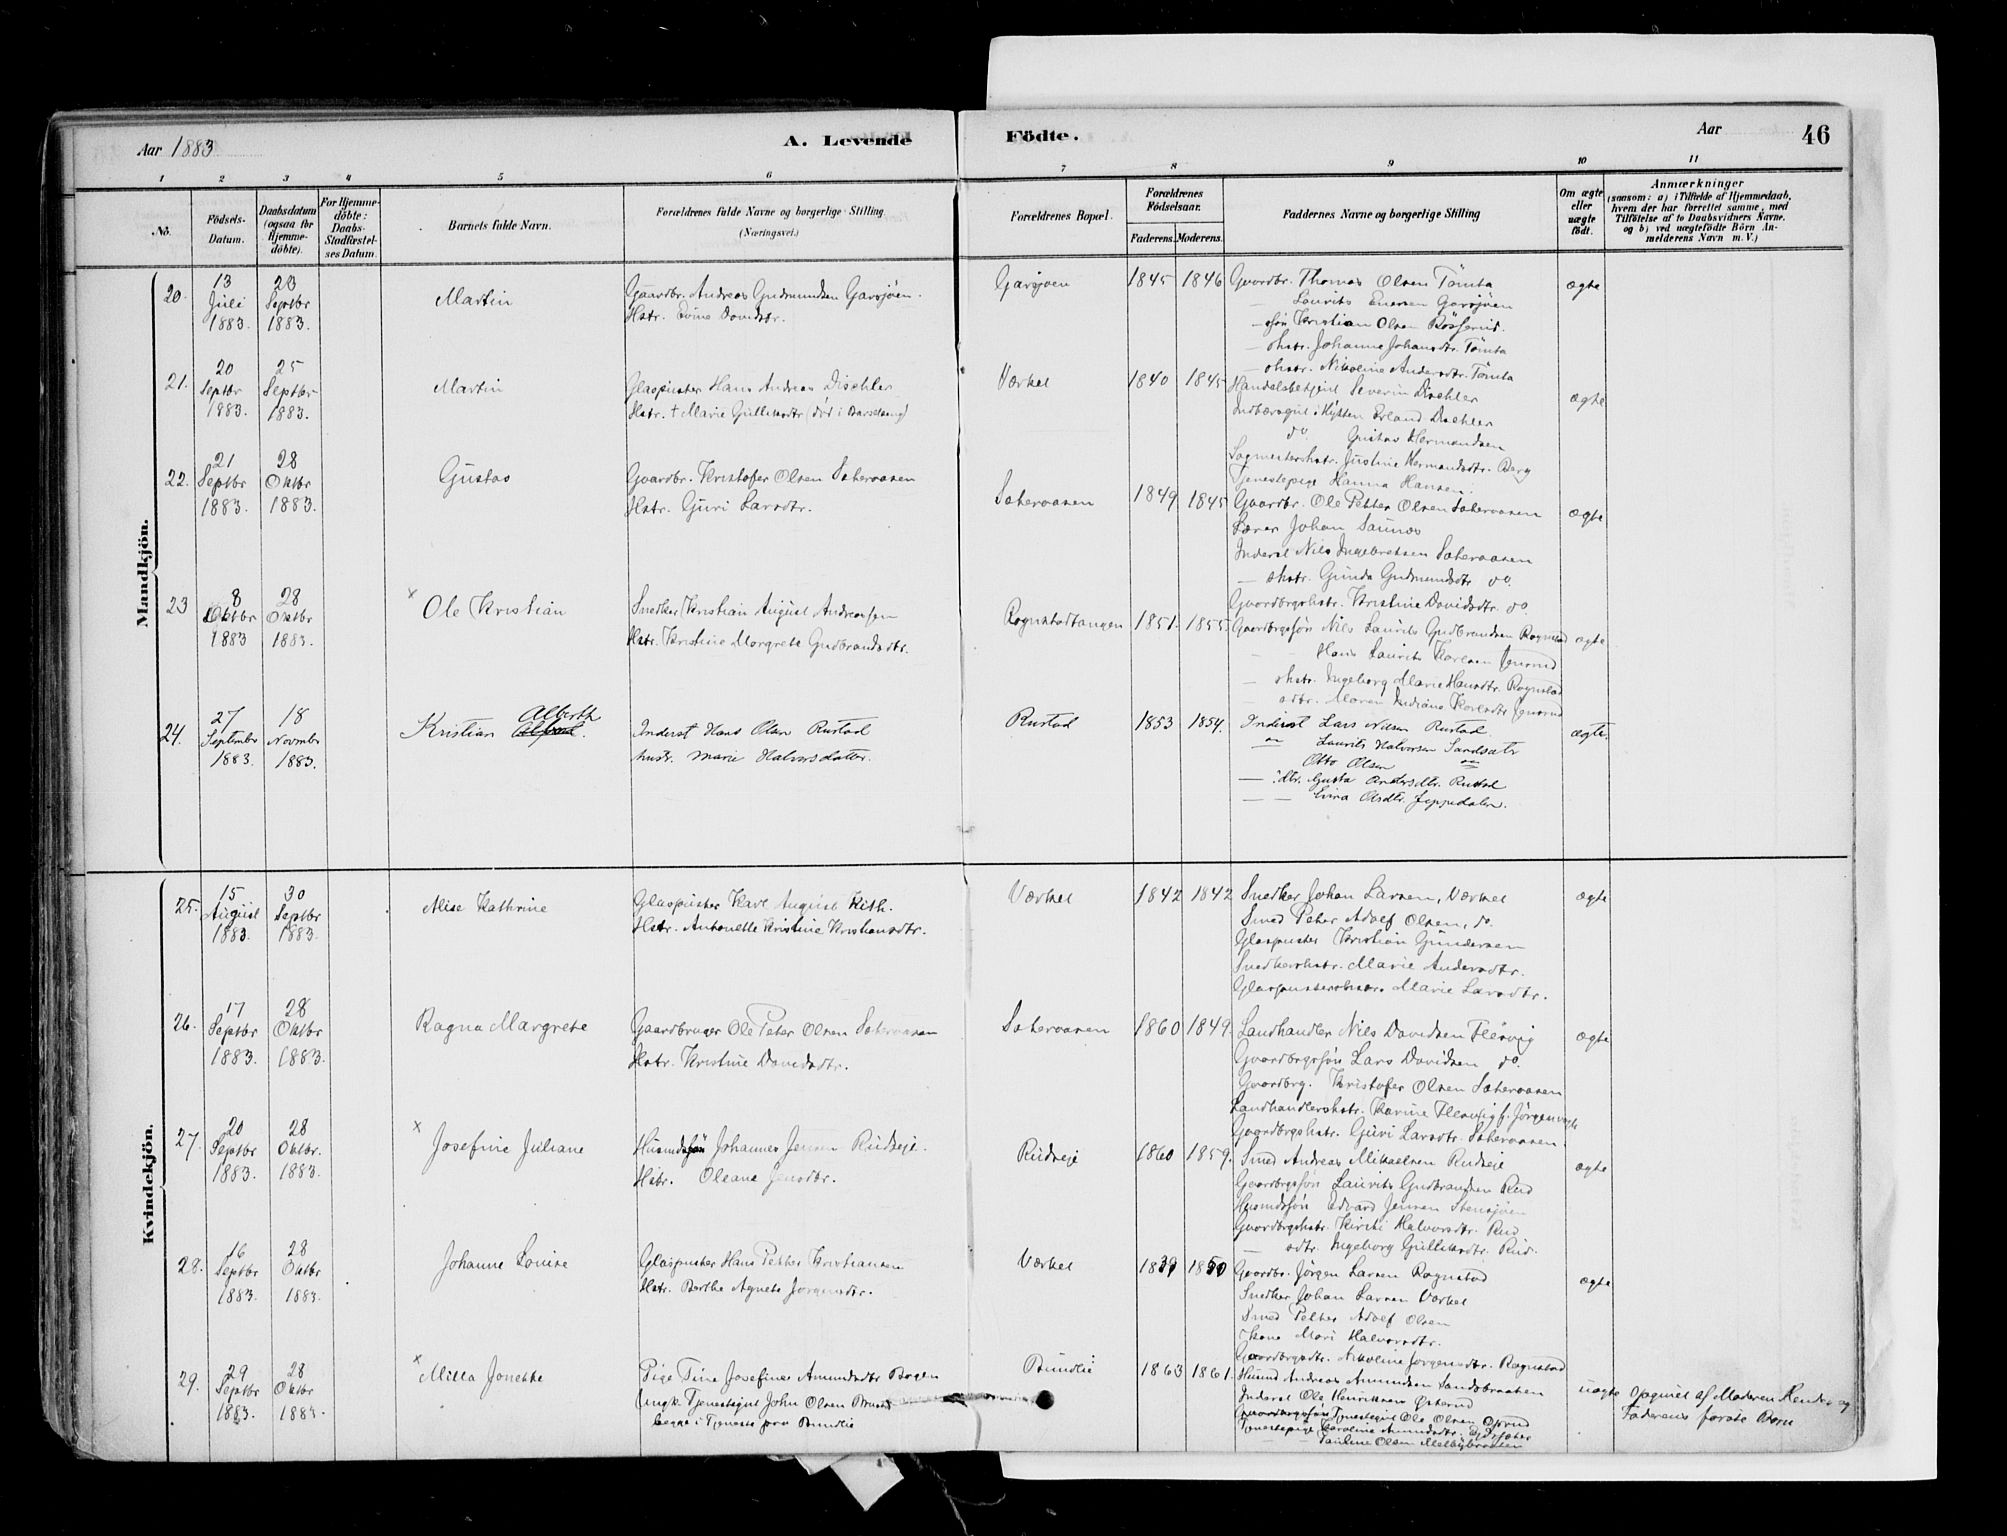 Aar 1883
A. Levende
Födte.
Aar
46
1 2 3 4 5 6 7 8 9 10 11
No.
Födsels-
Datum.
Daabsdatum
(ogsaa for
Hjemme-
döbte).
For Hjemme-
döbte:
Daabs-
Stadfæstel-
ses Datum.
Barnets fulde Navn.
Forældrenes fulde Navne og borgerlige Stilling
(Næringsvei.)
Forældrenes Bopæl.
Forældrenes
Födselsaar.
Faderens. Moderens.
Faddernes Navne og borgerlige Stilling
Om ægte
eller
uægte
födt.
Anmærkninger
(saasom: a) i Tilfælde af Hjemmedaab,
hvem der har forrettet samme, med
Tilföielse af to Daabsvidners Navne.
og b) ved uægtefödte Börn An-
melderens Navn m. V.)
Mandkjön.
20.
13
Juli
1883.
23
Septbr
1883.
Martin
Gaardbr. Andreas Gudmundsen Garsjøen.
Hstr. Davidsdtr.
Garsjøen
1845 1846
Gaardbr. Thomas Olsen Tömta
Laurits Garsjöen
søn Kristian Olsen
Johanne Johansdtr. Tömta
Nikoline Andersdtr. Tömta
ægte
21.
20
Septbr
1883.
25
Septbr
1883.
Martin
Glaspuster Hans Andreas Dischler
Hstr. + Marie Gulliksdtr (död i Barselseng)
Værket
1840 1845
Severin Dischler
i Hytten Erland Dischler
do. Gustav Hermandsen
Justine Hermandsdtr. Berg
Tjenestepige Hanna Hansen.
ægte
22.
21
Septbr
1883.
28
Oktbr
1883.
Gustav
Gaardbr. Kristofer Olsen Sateraasen
Hstr. Guri Larsdtr.
Sateraasen
1849 1845
Gaardbr. Ole Petter Olsen Sateraasen
Lærer Johan
Inderst Nils Ingebretsen Sateraasen
Gunda Gudmundsdtr do.
Gaardbrgshstr. Kristine Davidsdtr. do.
ægte
23
8
Oktbr
1883
28
Oktbr
1883.
x Ole Kristian
Snedker Kristian August Andreasen
Hstr. Kristine Margrete Gudbrandsdtr.
Rognstadtangen
1851. 1855.
Gaardbrgssøn Nils Laurits Gudbrandsen Rognstad
Hans Laurits Karlsen
Ingeborg Marie Hansdtr. Rognstad
Maren Indiane Karlsdtr
ægte
24.
27
September
1883.
18
Novmbr
1883.
Alberth
Kristian
Inderst Hans Olsen Rustad
hust. Marie Halvorsdatter.
Rustad
1853 1854.
Inderst Lars Nilsen Rustad.
Laurits Halvorsen
Otto Olsen
dtr. Gusta Andersdtr. Rustad
Olsdtr. Jeppedalen.
ægte.
Kvindekjön.
25.
15
August
1883.
30
Septbr
1883.
Alise Kathrine
Glaspuster Karl August Kith.
Hstr. Antonette Kristine Kristiansdtr.
Værket
1842 1842
Snedker Johan Larsen, Værket
Smed Peter Adolf Olsen, do.
Glaspuster Kristian Gundersen
Snedkershstr. Marie Andersdtr.
Glaspustershstr. Marie Larsdtr.
ægte
26.
17
Septbr
1883.
28
Oktbr
1883.
Ragna Margrete
Gaardbruger Ole Peter Olsen Sateraasen
Hstr. Kristine Davidsdtr.
Sateraasen
1860 1849.
Landhandler Nils Davidsen Flesvig
Gaardbrgssøn Lars Davidsen do.
Gaardbrg. Kristofer Olsen Sateraasen
Landhandlershstr. Karine Flesvig f. Jörgensgt
Gaardbrgshstr. Guri Larsdtr. Sateraasen
ægte
27.
20
Septbr
1883.
28
Oktbr.
1883.
x Josefine Juliane
Husmdssøn Johannes Jensen Rudseje.
Hstr. Oleana Jensdtr.
Rudseje
1860 1859.
Smed Andreas Mikaelsen Rudseje
Gaardbrgssøn Laurits Gudbrandsen Rud
Husmdssøn Edvard Jensen Stensjøen
Gaardbrgshstr. Kirsti Halvorsdtr. Rud
dtr. Ingeborg Gulliksdtr. Rud.
ægte
28.
16
Septbr
1883.
28
Oktbr
1883.
Johanne Louise
Glaspuster Hans Petter Kristiansen
Hstr. Berthe Agnete Jørgensdtr.
Værket
1839 1850
Gaardbr. Jörgen Larsen Rognstad
Snedker Johan Larsen Værket
Smed Petter Adolf Olsen
Kone Mari Halvorsdtr.
Gaardbrgsdtr. Nikoline Jörgensdtr. Rognstad
ægte
29.
29
Septbr
1883.
28
Oktbr
1883.
x Milla Jonette
Pige Tine Josefine Amundsdtr Bogen
Ungk. Tjenestegut John Olsen
begge i Tjeneste paa Bundlie
Bundlie
1863 1861.
Husmd Andreas Amundsen Sandsbraaten
Inderst Ole Henriksen
Tjenestegut Ole Olsen
Tjenestepige Karoline Amundsdtr.
Pauline Olsen Melbybraaten
uægte
Opgivet af Moderen. Hendes og
Faderens første Barn